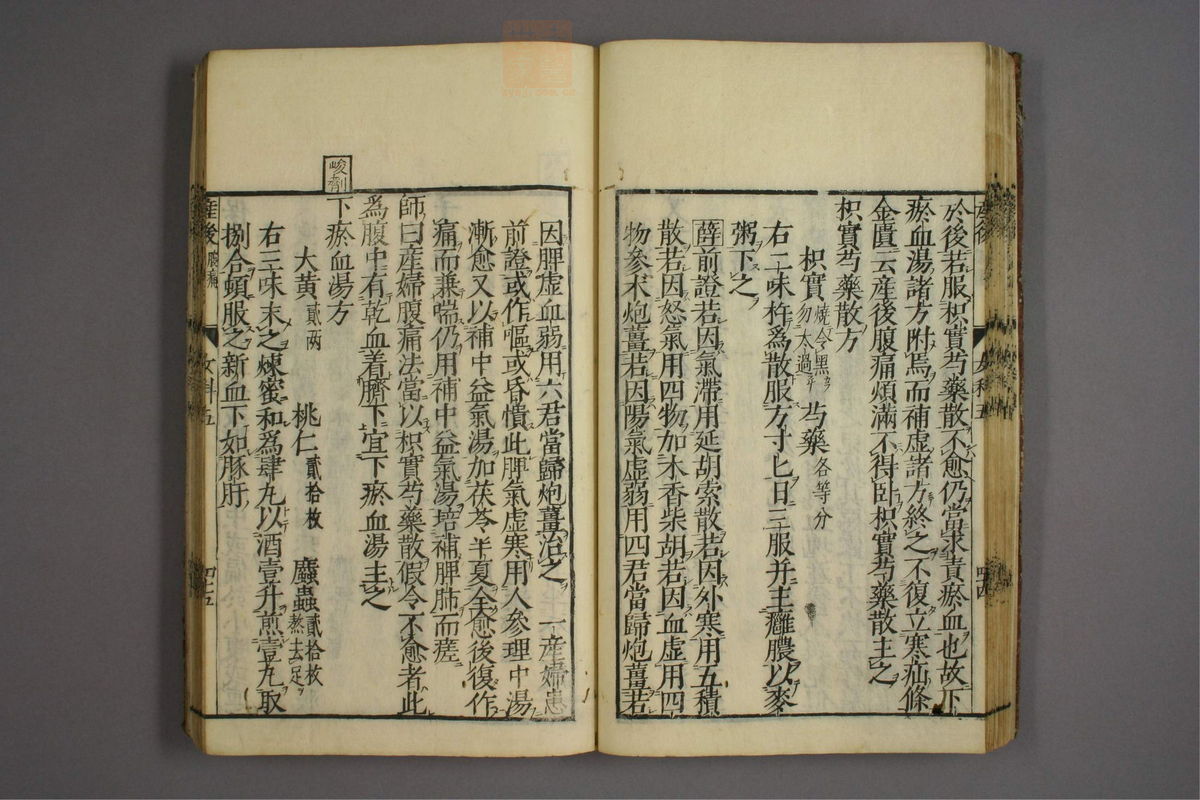 於後若服枳實芍藥散不愈仍當求責瘀血也故下
瘀血湯諸方附焉而補虛諸方終之不復立寒疝條
金匱云産後腹痛煩滿不得卧枳實芍藥散主之
枳實芍藥散方
枳實 燒令黑勿太過 芍藥 各等分
右二味杵爲散服方寸匕日三服并主癰膿以麥
粥下之
薛前證若因氣滯用延胡索散若因外寒用五積
散若因怒氣用四物加木香柴胡若因血虛用四
物參朮炮薑若因陽氣虛弱用四君當歸炮薑若
産後 女科五 四十四
因脾虛血弱用六君當歸炮薑治之 一産婦患
前證或作嘔或昏憒此脾氣虛寒用人參理中湯
漸愈又以補中益氣湯加茯苓半夏全愈後復作
痛而兼喘仍用補中益氣湯培補脾肺而瘥
師曰産婦腹痛法當以枳實芍藥散假令不愈者此
爲腹中有乾血着臍下宜下瘀血湯主之
峻劑
下瘀血湯方
大黄 貳兩 桃仁 貳拾枚 䗪蟲 貳拾枚熬去足
右三味末之煉蜜和爲肆丸以酒壹升煎壹丸取
捌合頓服之新血下如豚肝
産後 腹痛 女科五 四十五